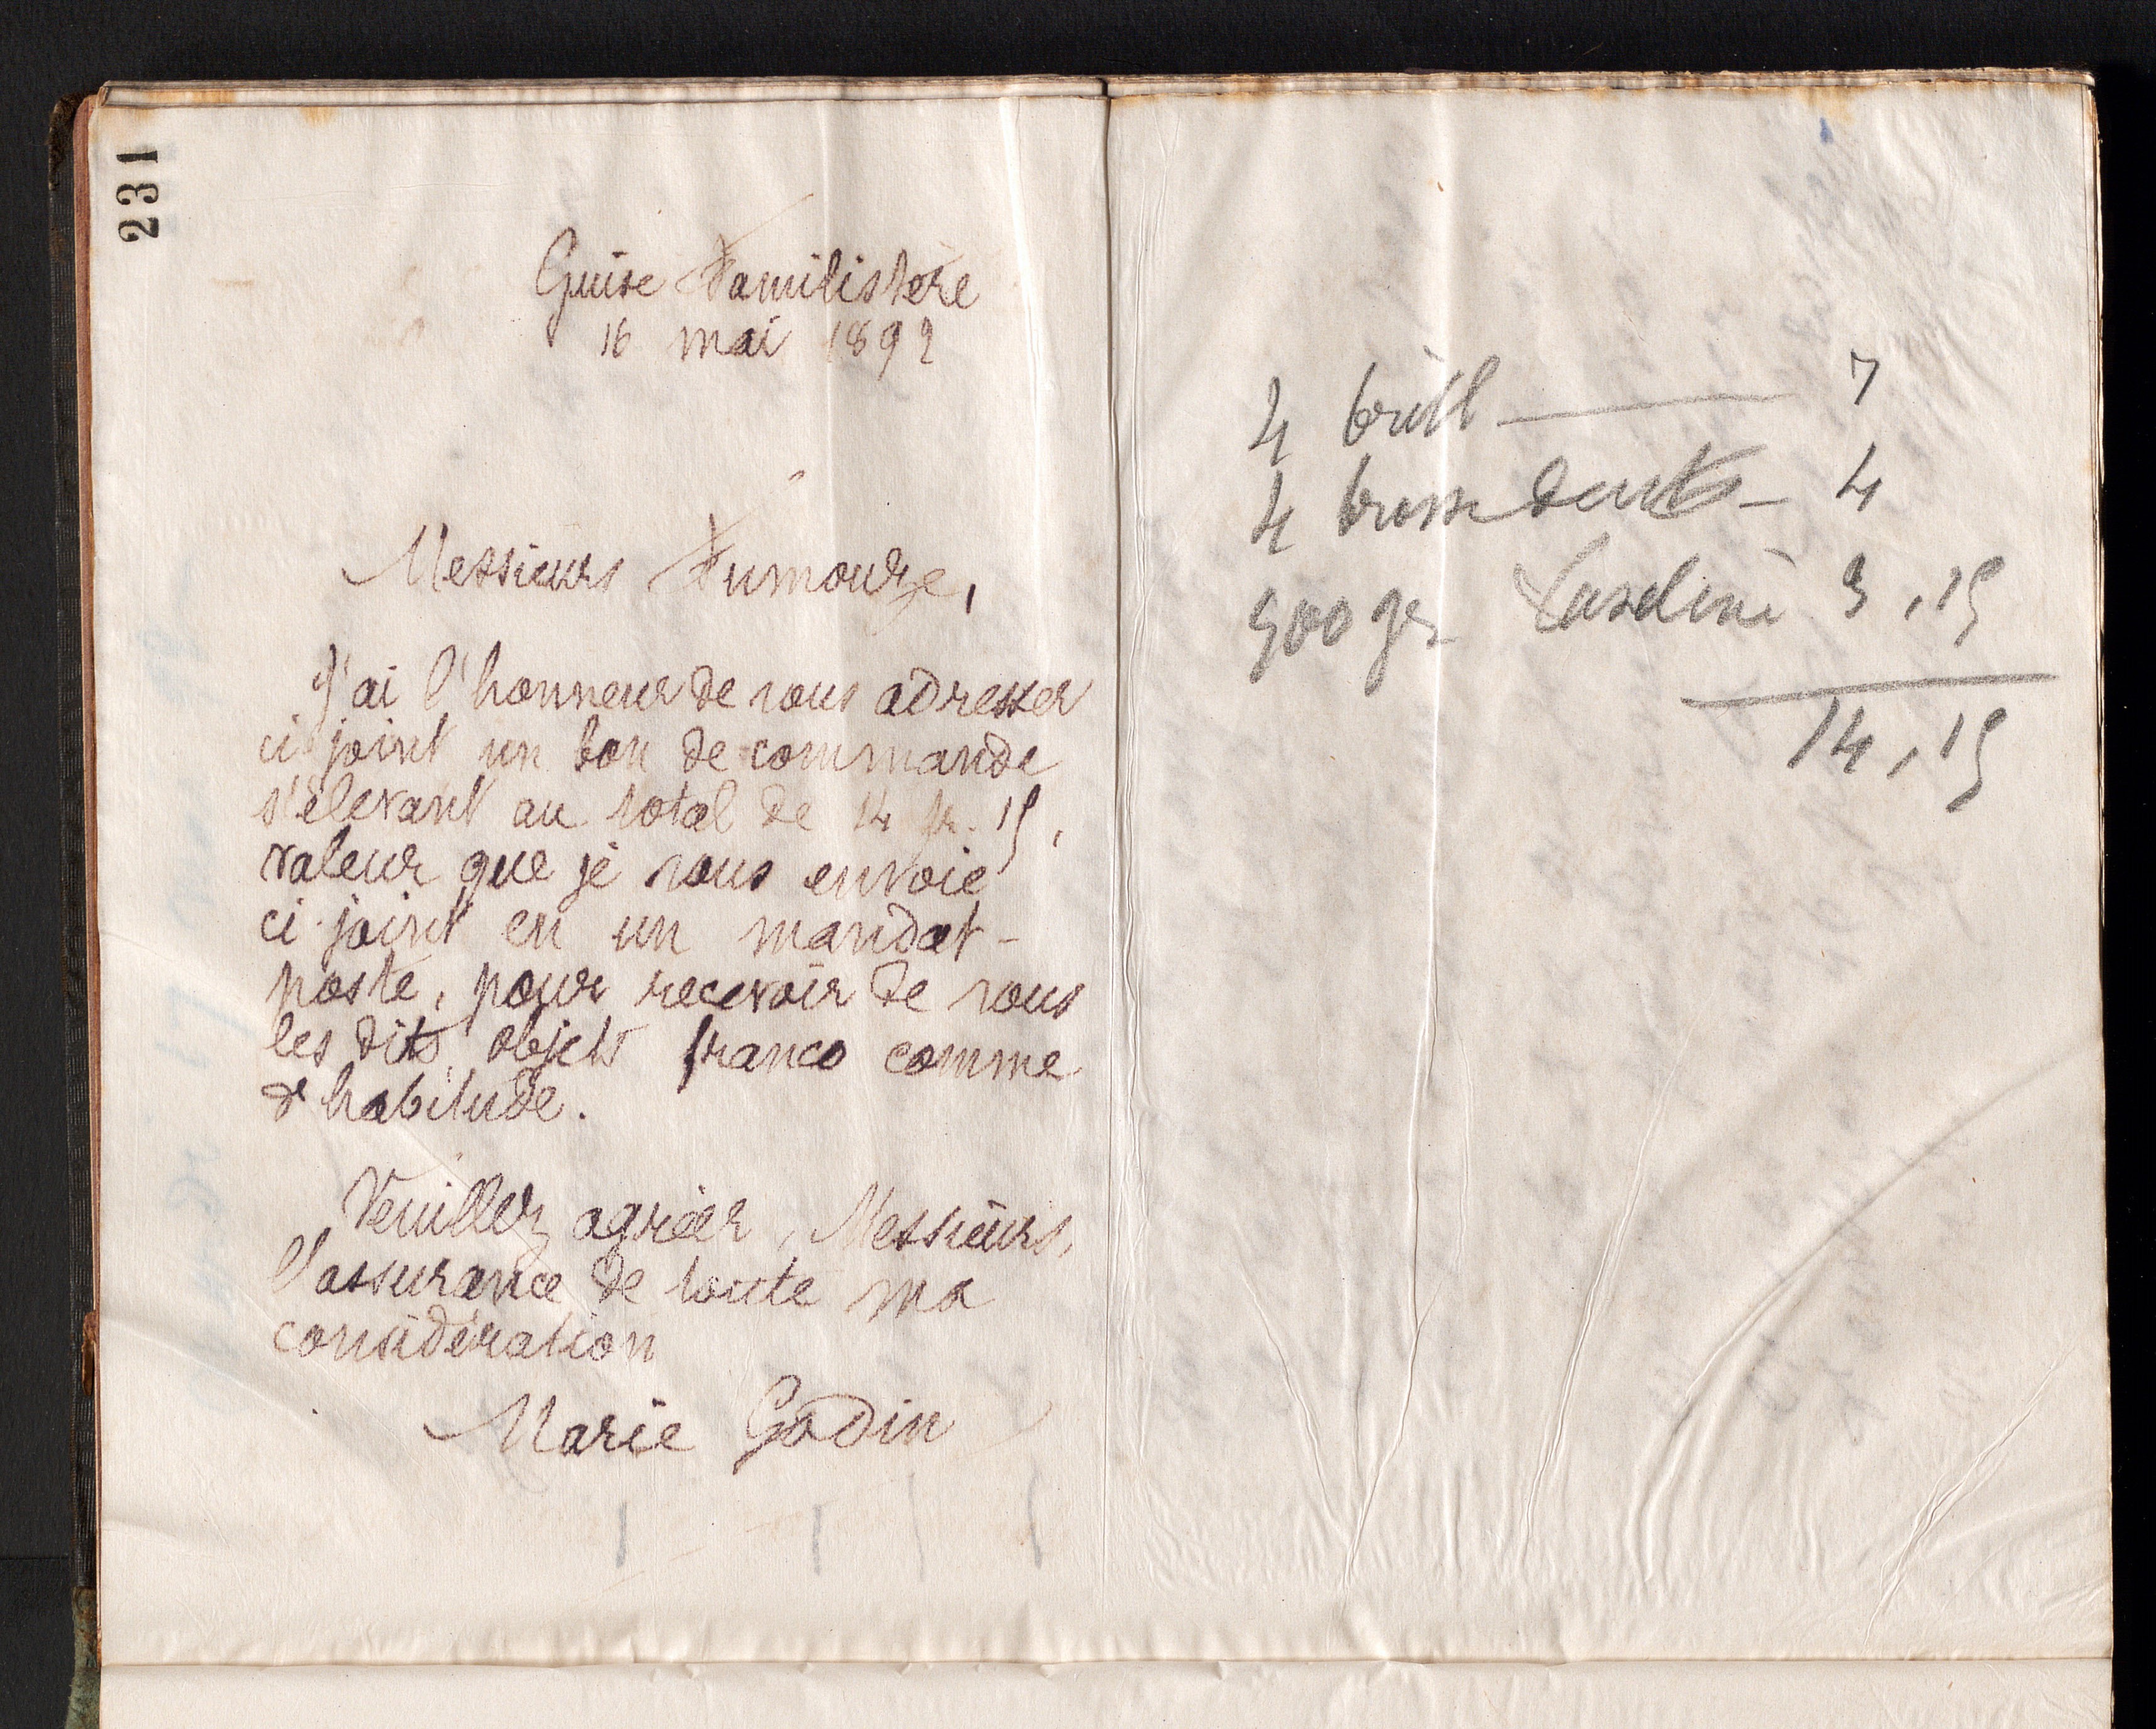 231
Guise Familistère
16 mai 1892
Messieurs Fumouze,
J'ai l'honneur de vous adresser
ci-joint un bon de commande
s'élevant au total de 14 fr. 15,
valeur que je vous envoie
ci-joint en un mandat-
poste, pour recevoir de vous
les dits objets franco comme
d'habitude.
Veuillez agréer, Messieurs,
l'assurance de toute ma
considération
Marie Godin
4 brill — 7
4 brosse dents — 4
500 gr Vaseline 3,15
14,15